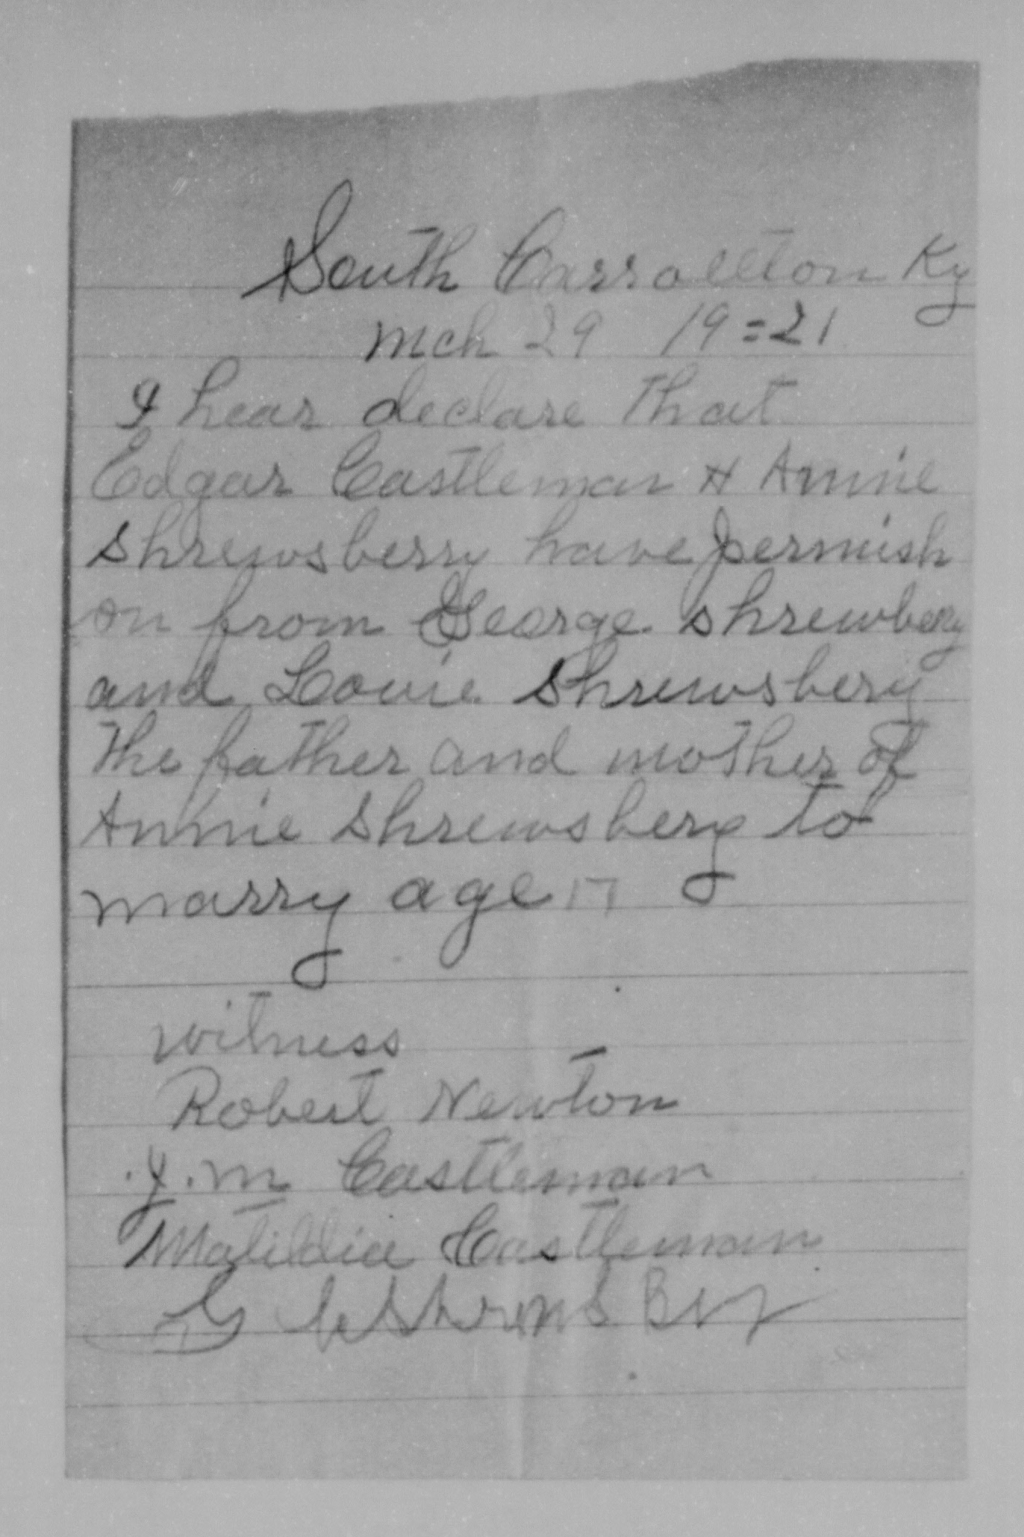 South Carrollton Ky
Mch 29 19=21
I hear declare that
Edgar Castleman & Annie
Shrewsberry have permish
on from George Shrewbery
and Louie Shrewsbery
the father and mother of
Annie Shrewsbery to
marry age 17
witness
Robert Newton
J. M Castleman
Matildia Castleman
G